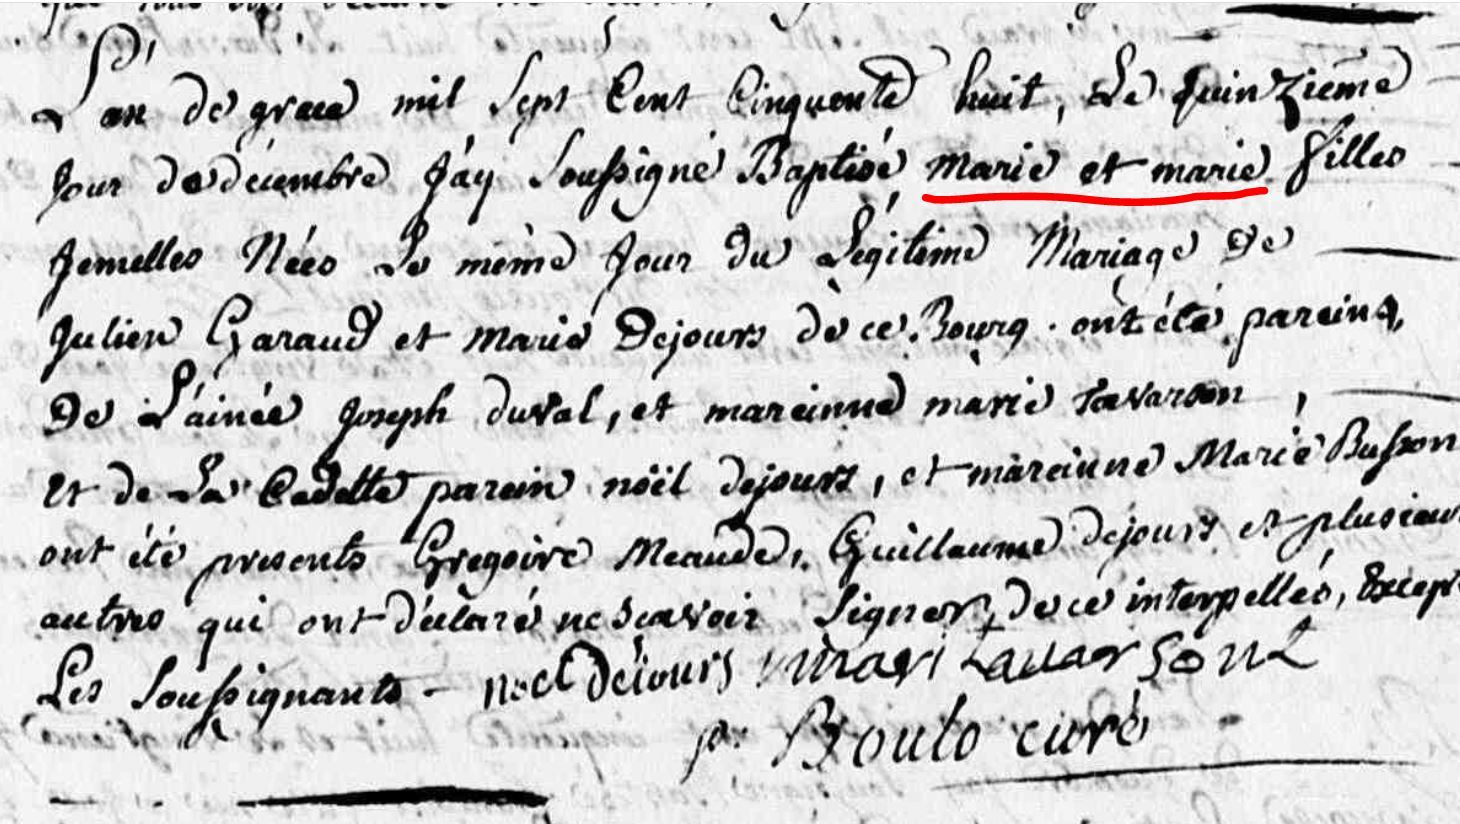 L'an de grace mil sept Cent Cinquante huit, Le quinzieme
Jour de décembre J'ay Soussigné Baptisé marie et marie filles
Jemelles Nées Le même Jour du Légitime Mariage De
Julien Garaud et marie Dejours de ce Bourg. ont été pareins,
De L'ainée Joseph duval, et mareinne marie tavarson,
Et de La Cadette parein noël dejours, et mareinne Marie Busson
ont été presents Gregoire Meaude, Guillaume dejours et plusieurs
autres qui ont déclaré ne scavoir Signer, de ce interpellés, Except
Les Soussignants - noel Dejours mari tavarsont
p. Boulo curé